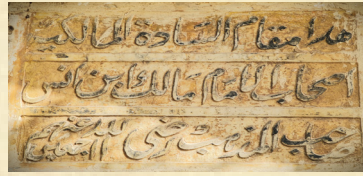 هذا مقام السادة المالكية
اصحاب الامام مالك ابن انس
صاحب المذهب رضي الله عنهم اجمعين